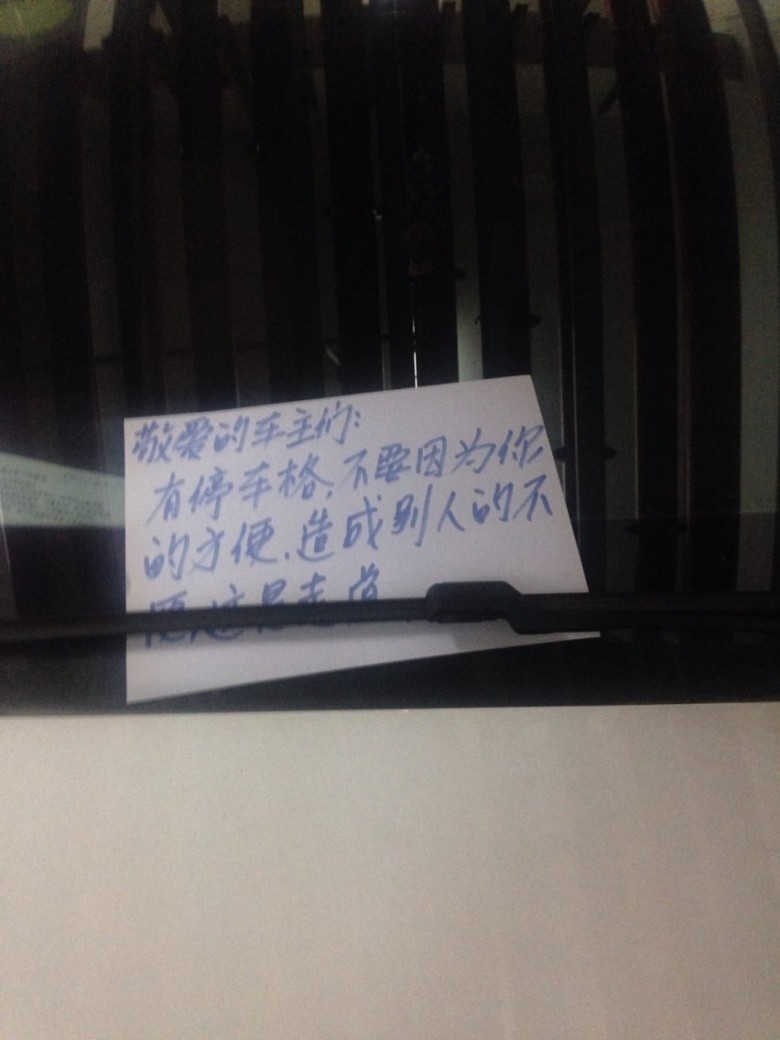 敬爱的车主们:
有停车格,不要因为你
的方便,造成别人的不
便,这是素